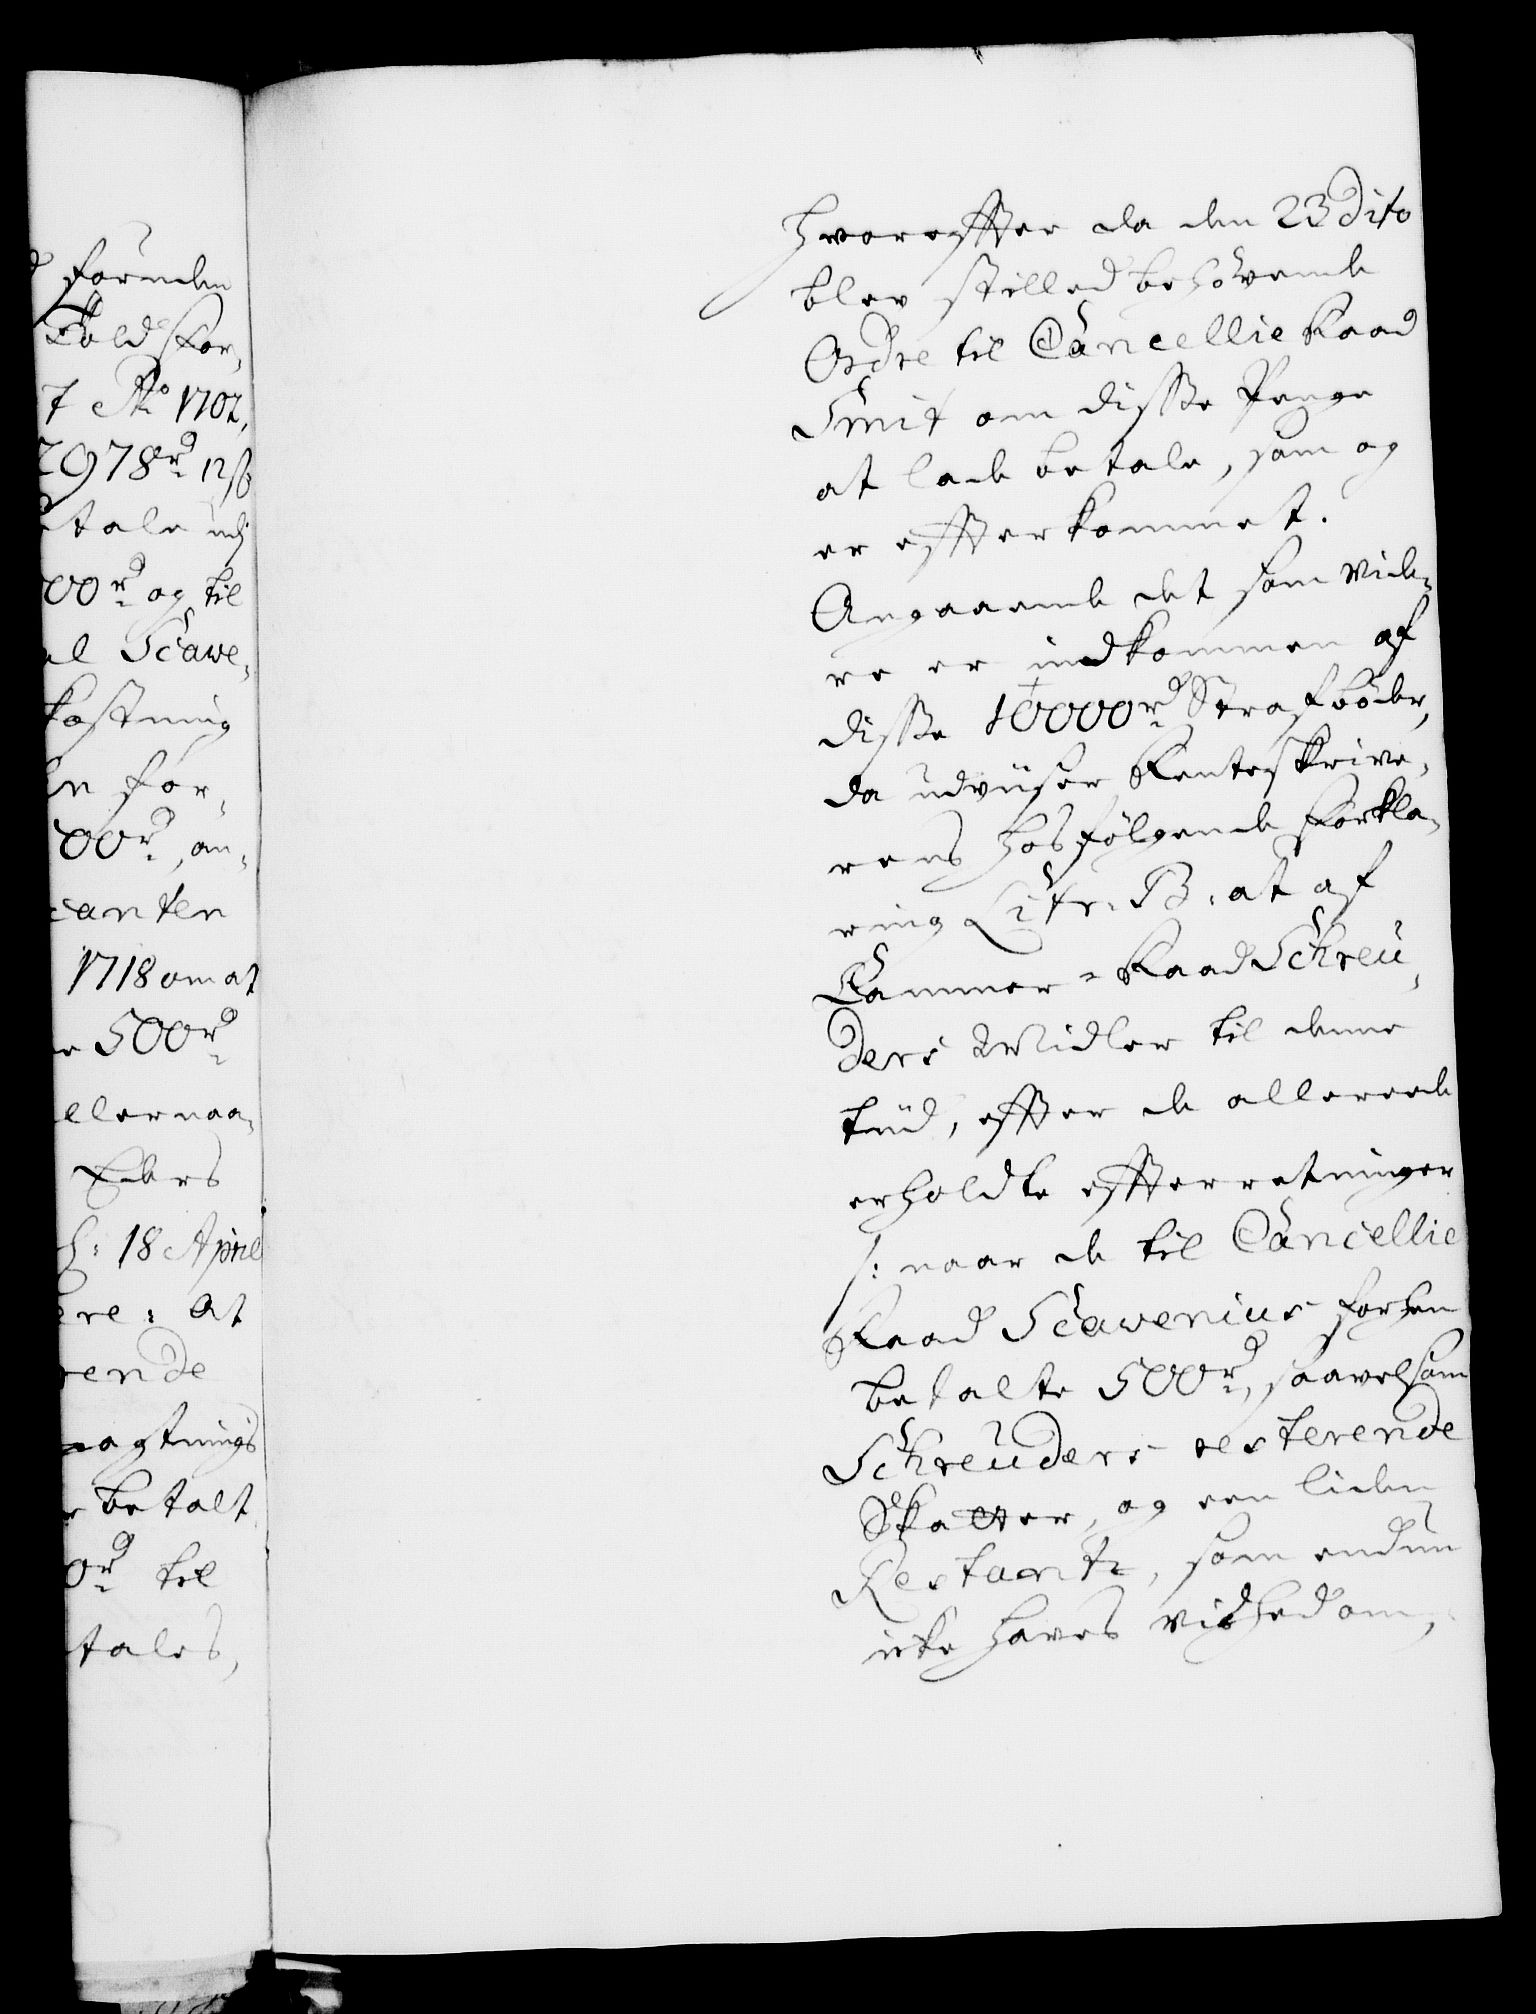 fornden
Told for,
7 Ao 1702,
2978 rd 12 ß
tale udj
00 rd og til
al Scawe,
kostning
en for,
500 rd, an,
canten
1718 om at
e 500 rd
ller naa,
Eders
18 April
ere: at
rende
magtnings
betalt
0 rd til
tales,
hvorefter da den 23 Dito
blev stilled behövende
Ordre til Cancellie Raad
Smit om disse Penge
at lade betale, som og
er efterkommet.
Angaaende det som vide,
re er indkommen af
disse 10000 rd Strafböder,
da udviiser Renteskrive,
rens hosfölgende Forkla,
ring Litr. B. at af
Cammer-Raad Schreu,
ders Midler til denne
tiid, efter de allereede
erholdte efterretninger
/: naar de til Cancellie
Raad Scavenius forhen
betalte 500 rd, saavelsom
Schreuders resterende
Skatter, og een liden
Restantz, som endnu
icke haves vished om,